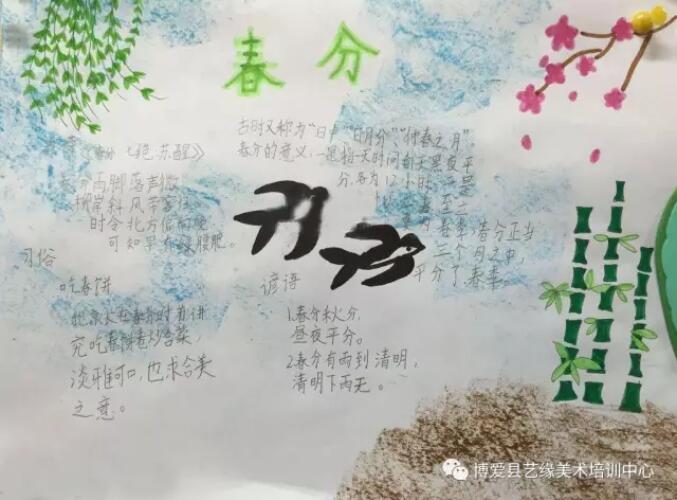 春分
古时又称为“日中”“日月分”、“仲春之月”。
春分的意义,一是指一天时间白天黑夜平
分,各为12小时,二是
春季,春分正当
三个月之中,
平分了春季。
《春分 七绝·苏醒》
春分雨脚落声微
柳岸斜风带客归
时令北方偏向晚
可知早有绿腰肥。
习俗
吃春饼
淡雅可口,也求合美
之意。
谚语
1.春分秋分,
昼夜平分。
2.春分有雨到清明,
清明下雨无。
博爱县艺缘美术培训中心